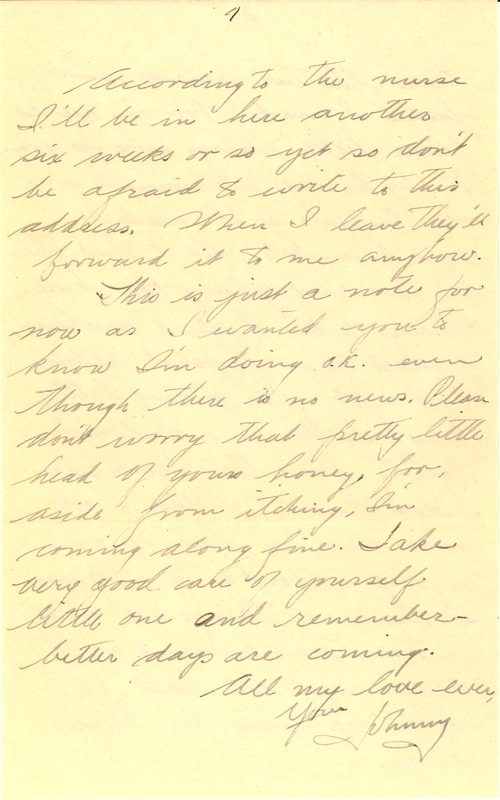 4
According to the nurse
I'll be in here another
six weeks or so yet so don't
be afraid to write to this
address. When I leave they'll
forward it to me anyhow.
This is just a note for
now as I wanted you to
know I'm doing o.k. even
though there is no news. Please
don't worry that pretty little
head of yours honey, for,
aside from itching, I'm
coming along fine. Take
very good care of yourself
little one and remember-
better days are coming.
All my love ever,
Your Johnny